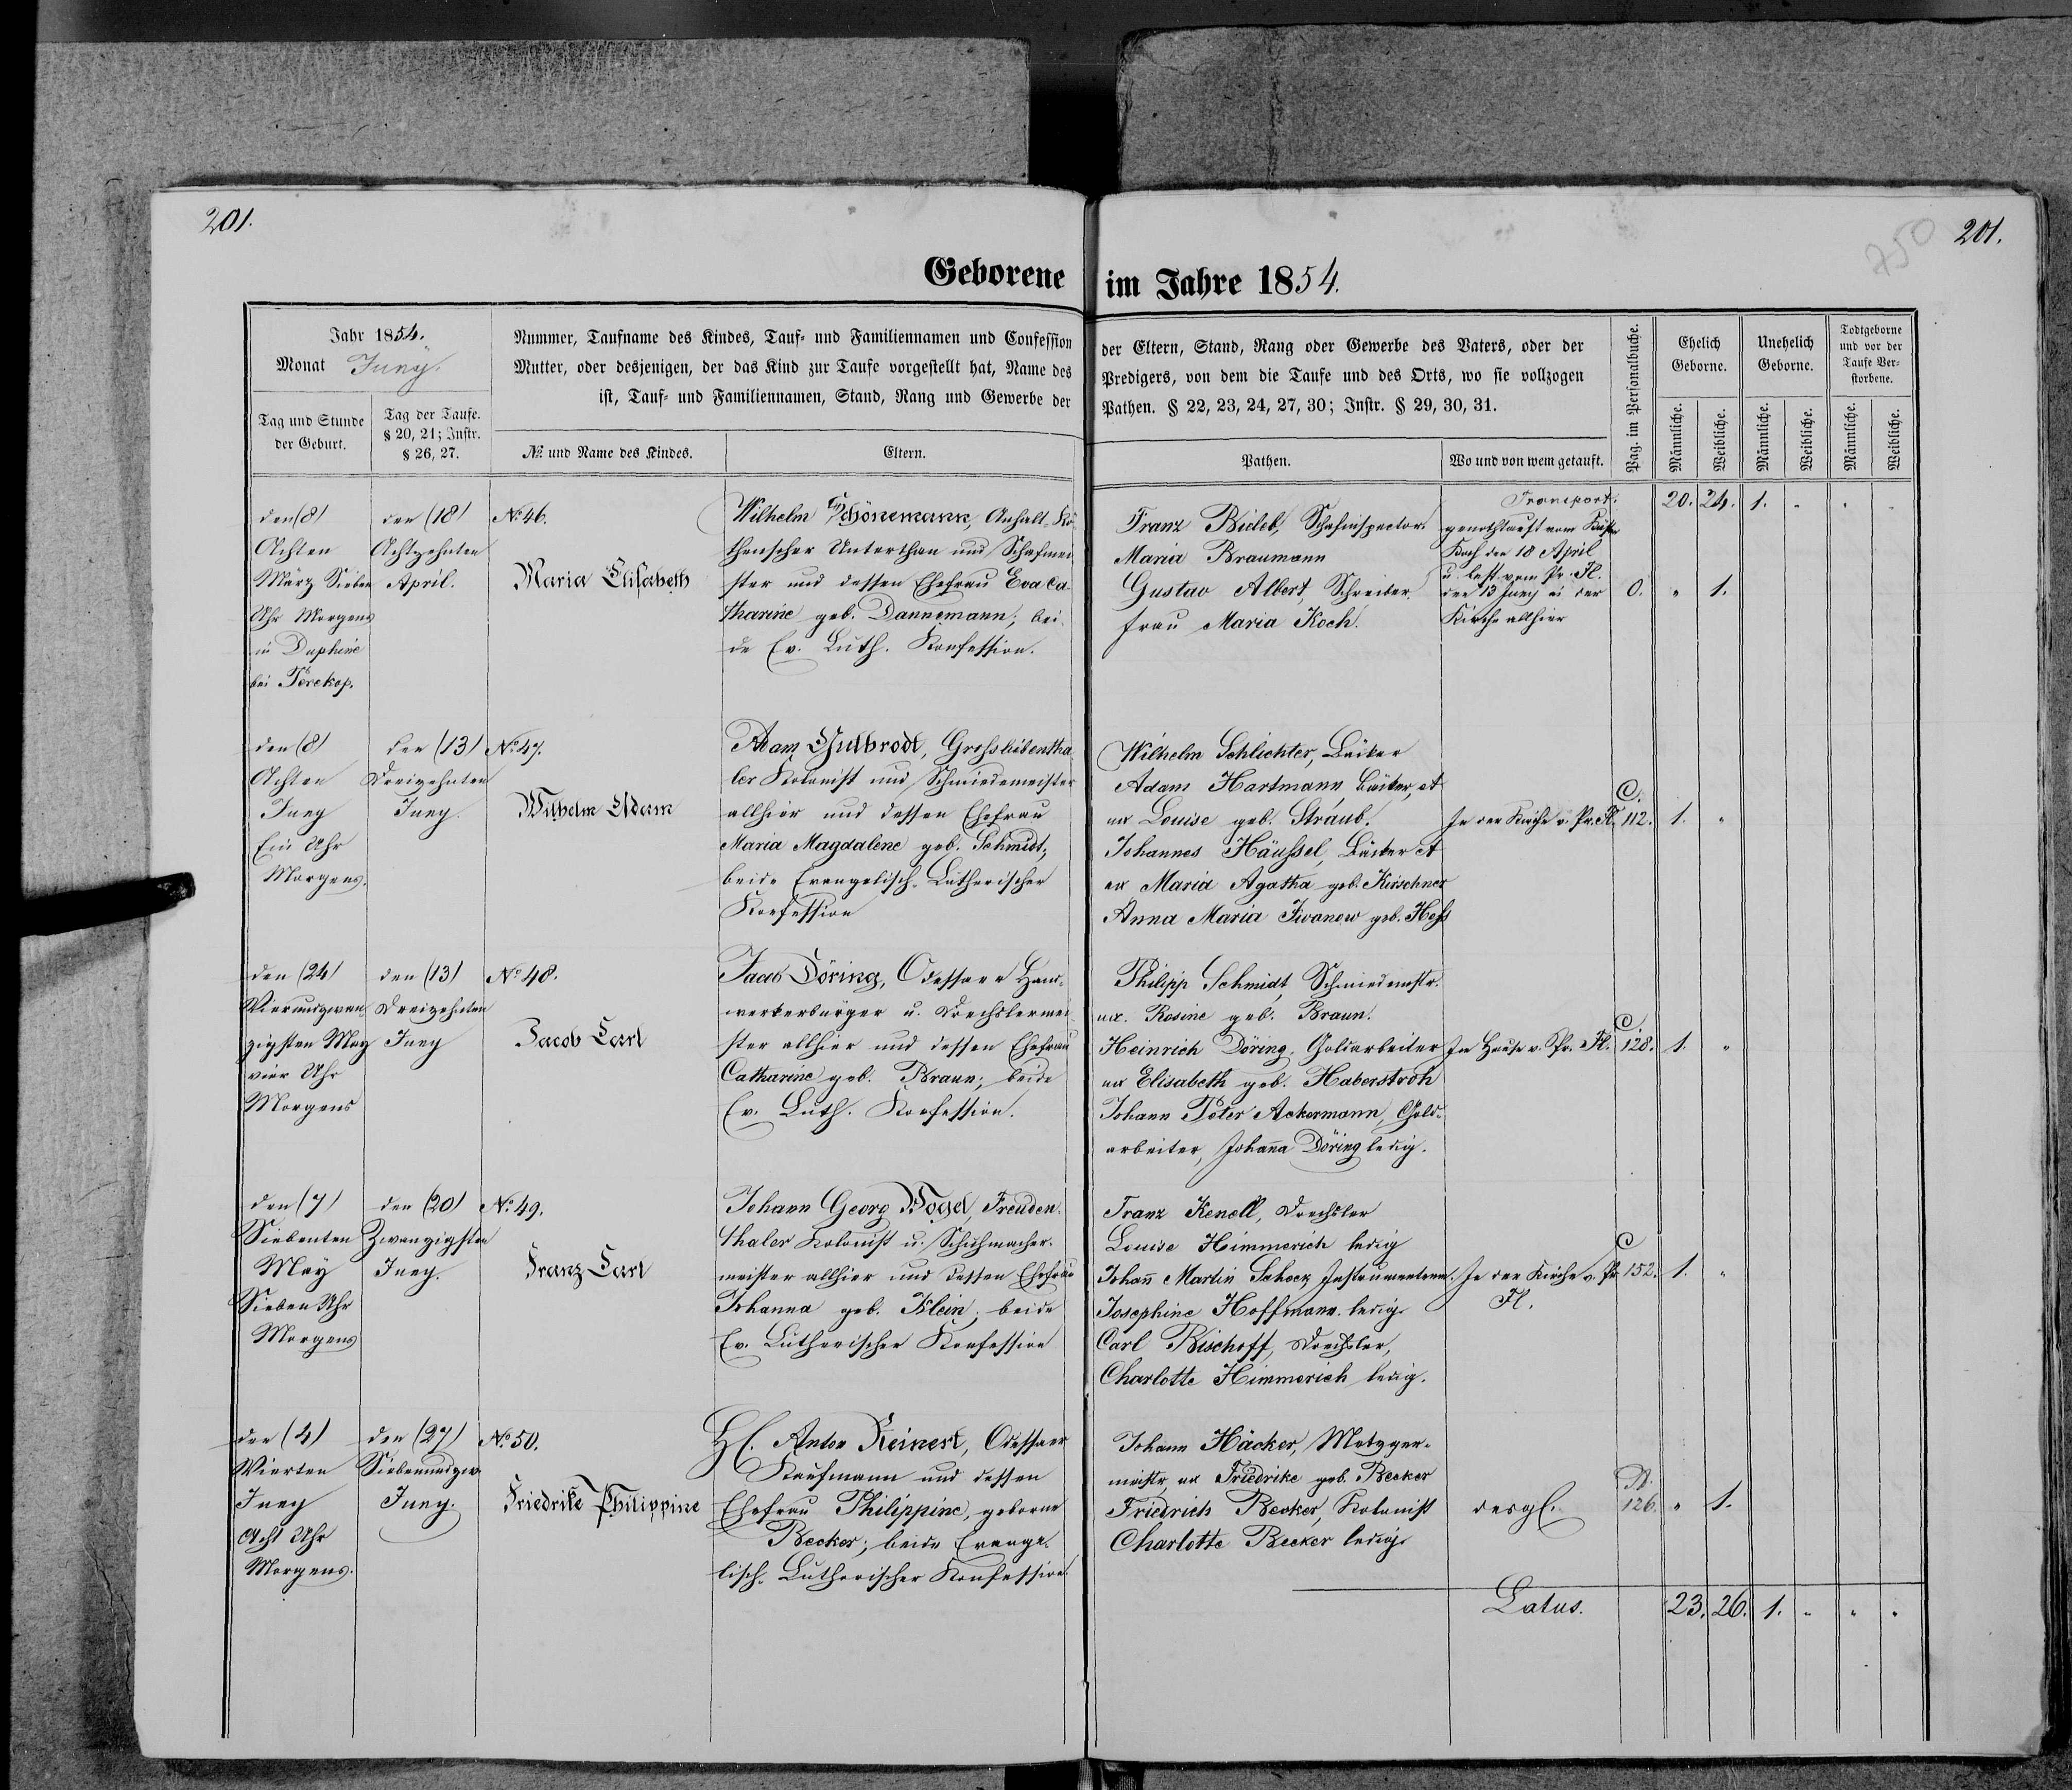 201.
201.
750
Geborene im Jahre 1854.
Jahr 1854.
Monat Juny.
Tag und Stunde der Geburt.
Tag der Taufe. § 20, 21; Instr. § 26, 27.
Nummer, Taufname des Kindes, Tauf- und Familiennamen und Confession der Eltern, Stand, Rang oder Gewerbe des Vaters, oder der
Mutter, oder desjenigen, der das Kind zur Taufe vorgestellt hat, Name des Predigers, von dem die Taufe und des Orts, wo sie vollzogen
ist, Tauf- und Familiennamen, Stand, Rang und Gewerbe der Pathen. § 22, 23, 24, 27, 30; Instr. § 29, 30, 31.
№ und Name des Kindes.
Eltern.
Pathen.
Wo und von wem getauft.
Pag. im Personalbuche.
Ehelich Geborne.
Unehelich Geborne.
Todtgeborne und vor der Taufe Verstorbene.
Männliche. Weibliche. Männliche. Weibliche. Männliche. Weibliche.
Transport. 20. 24. 1. " " "
den (8)
Achten
März Sieben
Uhr Morgens
in Daphine
bei Perekop.
den (18)
Achtzehnten
April.
No. 46.
Maria Elisabeth
Wilhelm Schönemann, Anhalt-Kö-
thenscher Unterthan und Schafmei-
ster und dessen Ehefrau Eva Ca-
tharine geb. Dannemann; bei-
de Ev. Luth. Konfession.
Franz Bieleb, Schafinspector
Maria Braumann
Gustav Albert, Schreiber.
Frau Maria Koch.
genothtauft vom Küster
Koch den 18 April
u. best. vom Pr. Fl.
den 13 Juny in der
Kirche allhier
0. " 1.
den (8)
Achten
Juny
Ein Uhr
Morgens.
den (13)
Dreizehnten
Juny.
No. 47.
Wilhelm Adam
Adam Gutbrodt, Grossliebentha-
ler Kolonist und Schmiedemeister
allhier und dessen Ehefrau
Maria Magdalene geb. Schmidt;
beide Evangelisch-Lutherischer
Konfession
Wilhelm Schlichter, Bäcker
Adam Hartmann Bäcker, et
ux Louise geb. Straub.
Johannes Häussel, Bäcker et
ux Maria Agatha geb. Kirschner
Anna Maria Iwanow geb. Hess
In der Kirche v. Pr. Fl.
C. 112. 1. "
den (24)
Vierundzwan-
zigsten May
vier Uhr
Morgens
den (13)
Dreizehnten
Juny
No. 48.
Jacob Carl
Jacob Döring, Odessaer Hand-
werkerbürger u. Drechslermei-
ster allhier und dessen Ehefrau
Catharine geb. Braun; beide
Ev. Luth. Konfession.
Philipp Schmidt, Schmiedemstr.
ux. Rosine geb. Braun.
Heinrich Döring, Goldarbeiter
ux Elisabeth geb. Haberstroh
Johann Peter Ackermann, Gold-
arbeiter, Johanna Döring ledig.
Im Hause v. Pr. Fl.
C 128. 1. "
den (7)
Siebenten
May
Sieben Uhr
Morgens
den (20)
Zwanzigsten
Juny.
No. 49.
Franz Carl
Johann Georg Vogel, Freuden-
thaler Kolonist u. Schuhmacher-
meister allhier und dessen Ehefrau
Johanna geb. Klein; beide
Ev. Lutherischer Konfession
Franz Kenell, Drechsler
Louise Himmerich ledig
Johann Martin Schock, Instrumentenm.
Josephine Hoffmann ledig
Carl Bischoff, Drechsler,
Charlotte Himmerich ledig.
In der Kirche v. Pr.
Fl.
C 152. 1. "
den (4)
Vierten
Juny
Acht Uhr
Morgens.
den (27)
Siebenundzw.
Juny.
No. 50.
Friedrike Philippine
H. Anton Reinert, Odessaer
Kaufmann und dessen
Ehefrau Philippine, geborne
Becker; beide Evange-
lisch-Lutherischer Konfession
Johann Häcker, Metzger-
meistr, ux Friedrike geb. Becker
Friedrich Becker, Kolonist
Charlotte Becker ledig
desgl.
126. " 1.
Latus. 23. 26. 1. " " "